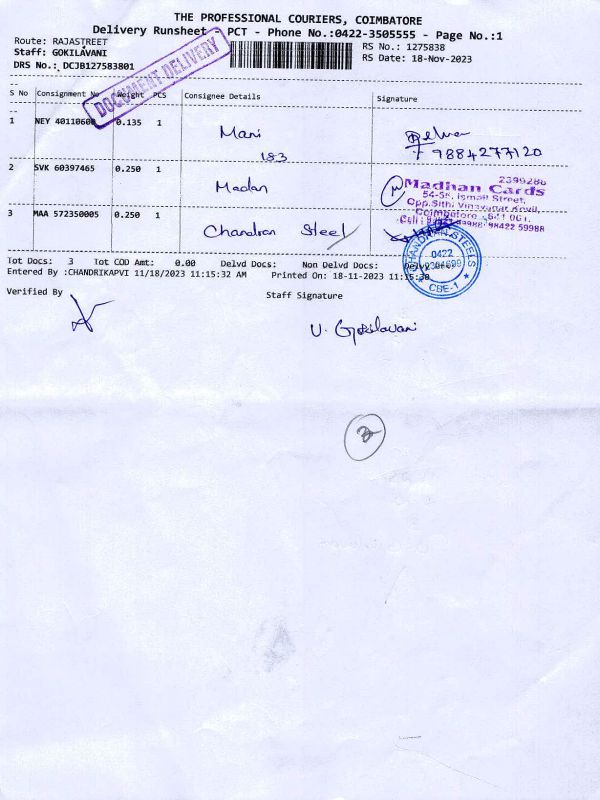 THE PROFESSIONAL COURIERS, COIMBATORE
Delivery Runsheet - PCT - Phone No.:0422-3505555 - Page No.:1
Route: RAJASTREET
RS No.: 1275838
Staff: GOKILAVANI
RS Date: 18-Nov-2023
DRS No.: DCJB127583801
DOCUMENT DELIVERY
S No Consignment No Weight PCS Consignee Details Signature
1 NEY 40110600 0.135 1 Mani
183
9884277120
2 SVK 60397465 0.250 1 Madan
2399286
Madhan Cards
54-58, Ismail Street,
Coimbatore - 641 001.
3 MAA 572350005 0.250 1 Chandran Steel
CHANDRAN STEELS
0422
CBE-1
Tot Docs: 3 Tot COD Amt: 0.00 Delvd Docs: Non Delvd Docs:
Entered By :CHANDRIKAPVI 11/18/2023 11:15:32 AM Printed On: 18-11-2023 11:15:30
Verified By
Staff Signature
V. Gokilavani
3